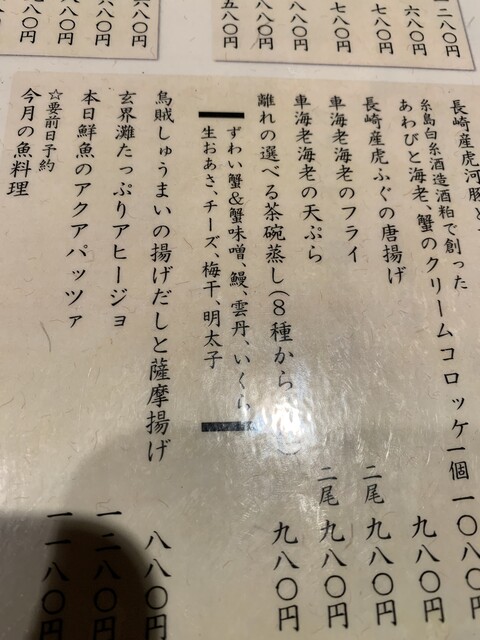 一二八〇円
六八〇円
七八〇円
七八〇円
八八〇円
八八〇円
五八〇円
六八〇円
八八〇円
八八〇円
八八〇円
長崎産虎河豚と
糸島白糸酒造酒粕で創った
あわびと海老、蟹のクリームコロッケ一個 一〇八〇円
長崎産虎ふぐの唐揚げ 九八〇円
車海老海老のフライ 二尾 九八〇円
車海老海老の天ぷら 二尾 九八〇円
離れの選べる茶碗蒸し(8種から) 九八〇円
ずわい蟹&蟹味噌、鰻、雲丹、いくら
生おあさ、チーズ、梅干、明太子
烏賊しゅうまいの揚げだしと薩摩揚げ 八八〇円
玄界灘たっぷりアヒージョ 一二八〇円
本日鮮魚のアクアパッツァ 一一八〇円
☆要前日予約
今月の魚料理